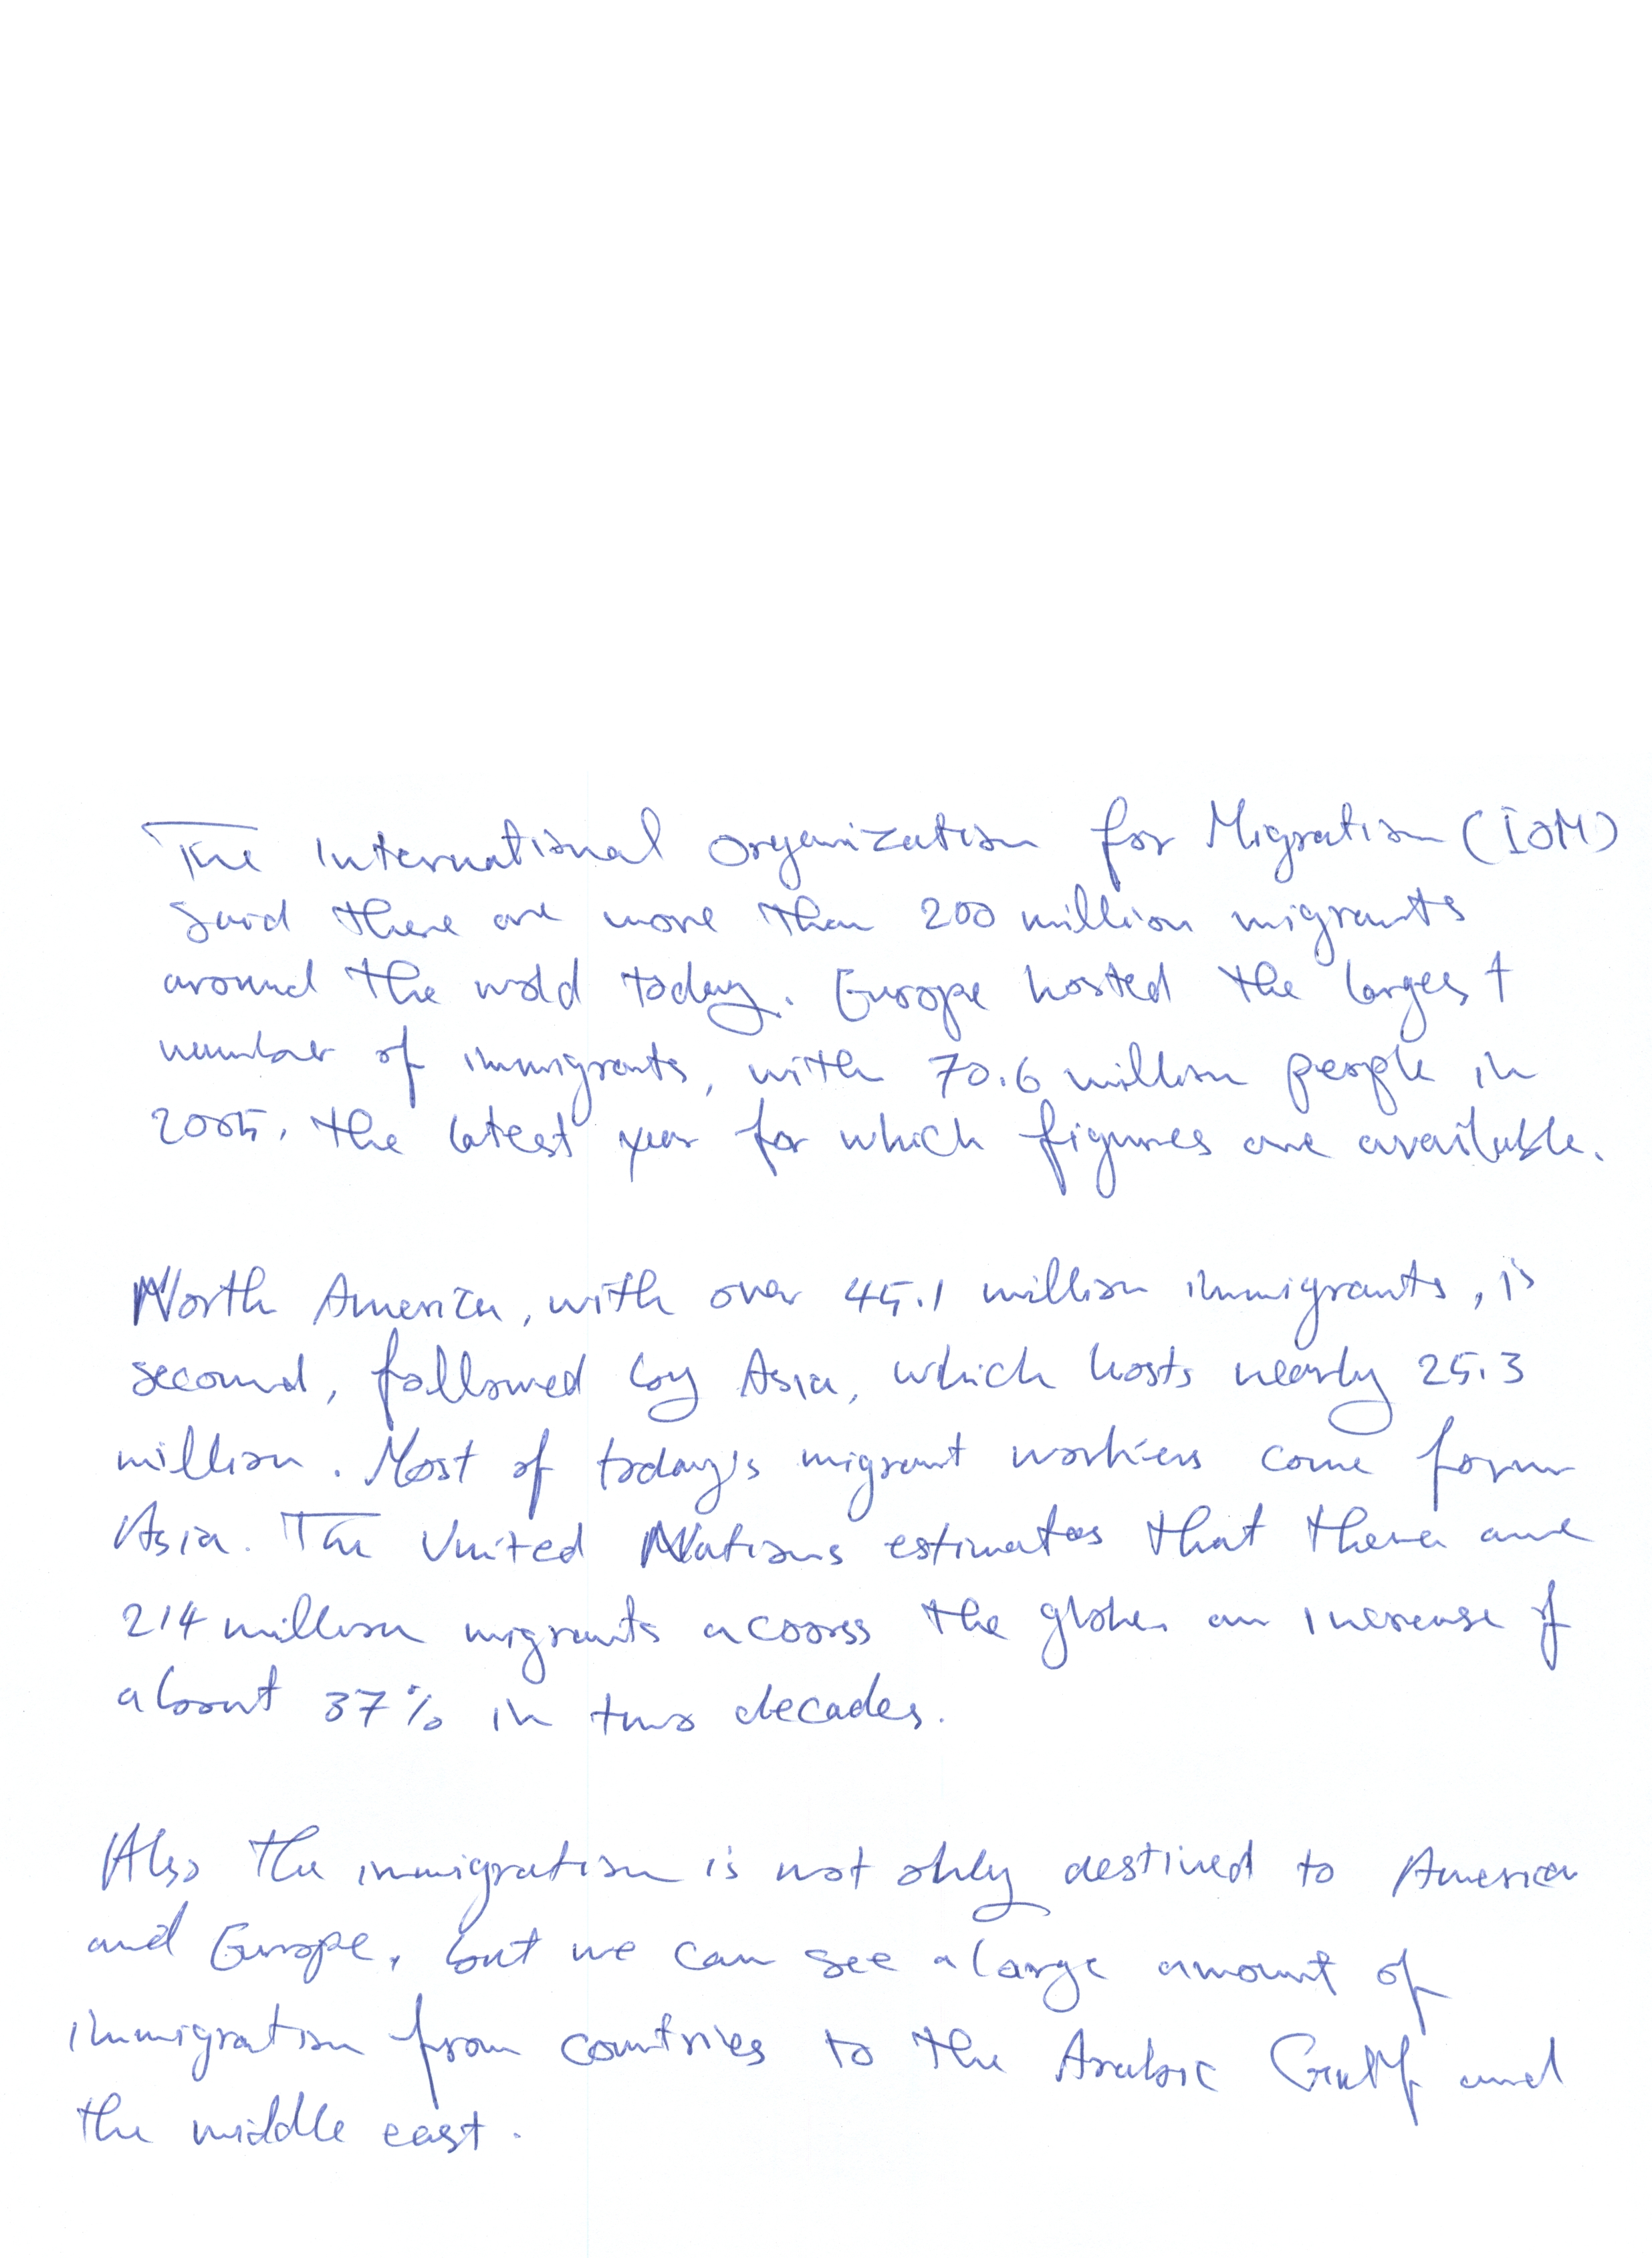 The International Organization for Migration (IOM)
said there are more than 200 million migrants
around the wold today. Europe hosted the largest
number of immigrants, with 70.6 million people in
2005, the latest year for which figures are available.
North America, with over 45.1 million immigrants, is
second, followed by Asia, which hosts nearly 25.3
million. Most of today's migrant workers come form
Asia. The United Nations estimates that there are
214 million migrants across the globe, an increase of
about 37% in two decades.
Also the immigration is not only destined to America
and Europe, but we can see a large amount of
immigration from countries to the Arabic Gulf and
the middle east.